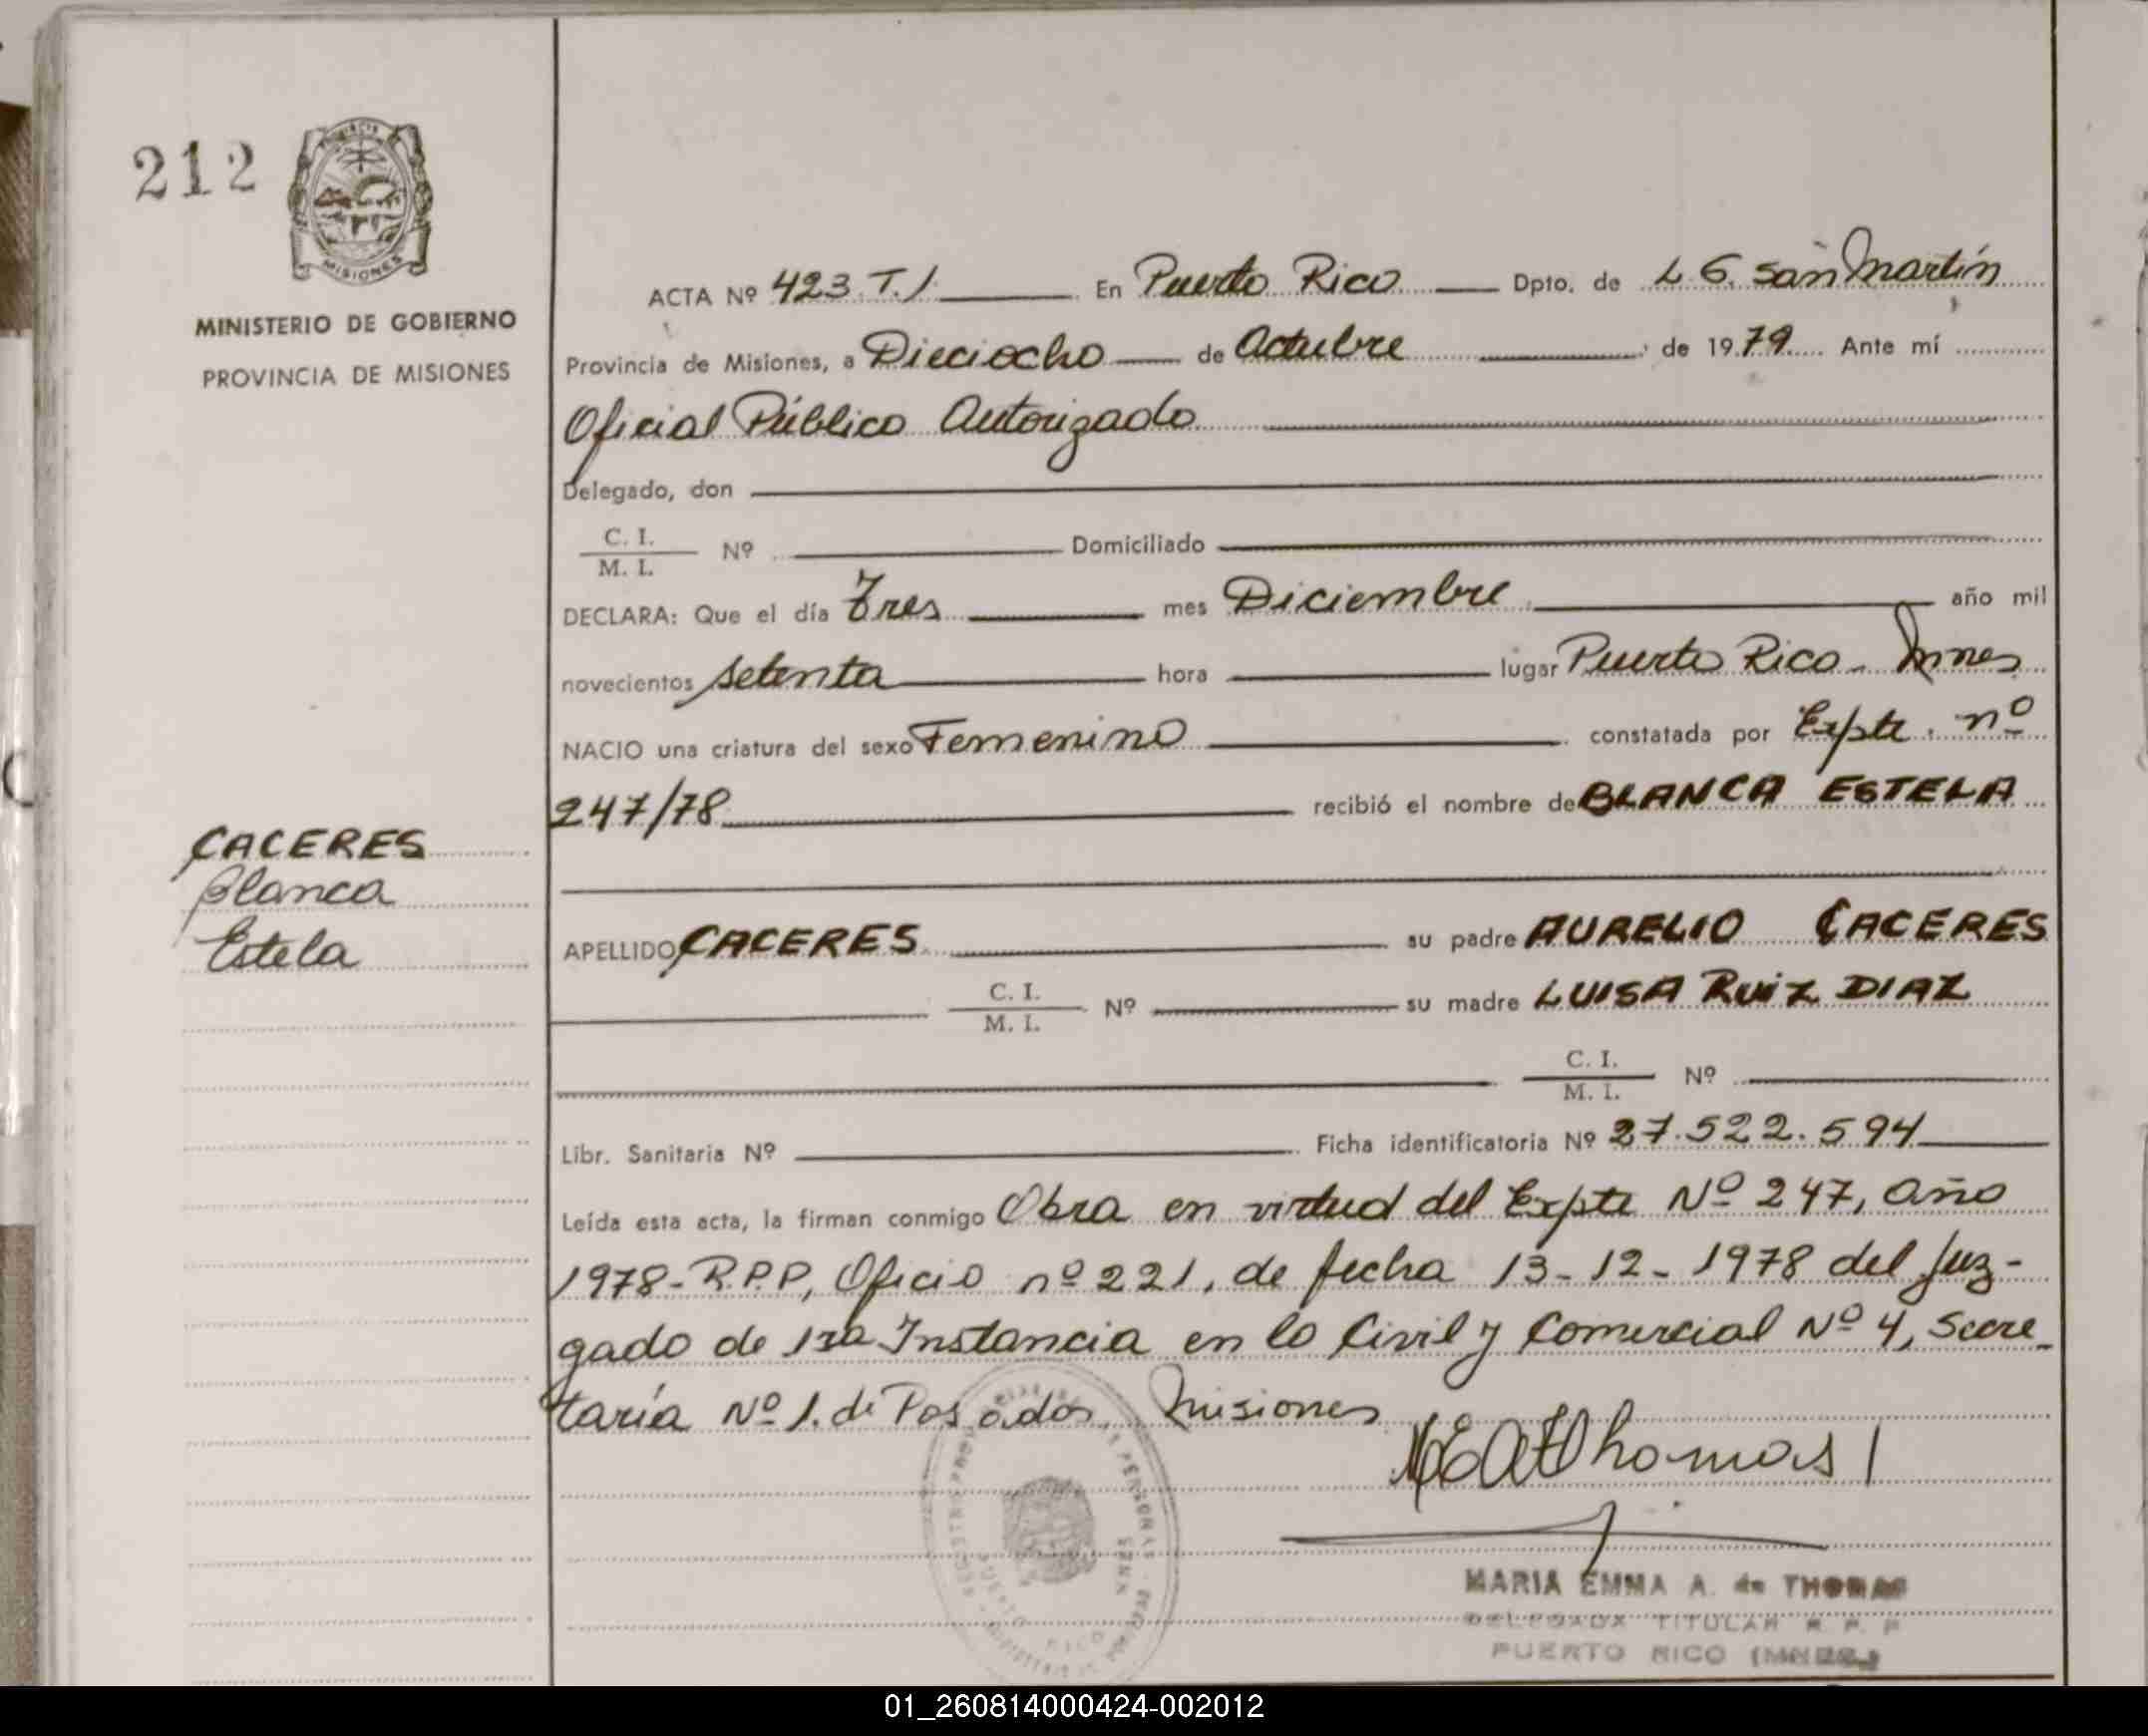 212
MISIONES
MINISTERIO DE GOBIERNO
PROVINCIA DE MISIONES
CACERES
Blanca
Estela
ACTA Nº 423 T.1 En Puerto Rico Dpto. de L. G. San Martín
Provincia de Misiones, a Dieciocho de Octubre de 1979 Ante mí
Oficial Público Autorizado
Delegado, don
C. I.
M. I. Nº Domiciliado
DECLARA: Que el día Tres mes Diciembre año mil
novecientos setenta hora lugar Puerto Rico - Mnes
NACIO una criatura del sexo Femenino constatada por Expte. nº
247/78 recibió el nombre de BLANCA ESTELA
APELLIDO CACERES su padre AURELIO CACERES
C. I.
M. I. Nº su madre LUISA RUIZ DIAZ
C. I.
M. I. Nº
Libr. Sanitaria Nº Ficha identificatoria Nº 27.522.594
Leída esta acta, la firman conmigo Obra en virtud del Expte Nº 247, año
1978-R.P.P, Oficio nº 221, de fecha 13-12-1978 del Juz-
gado de 1ra Instancia en lo Civil y Comercial Nº 4, Secre-
taría Nº 1. de Posadas, Misiones
MEAThomas
MARIA EMMA A. de THOMAS
DELEGADA TITULAR R. P. P
PUERTO RICO (MNES.)
PUERTO RICO
01_260814000424-002012